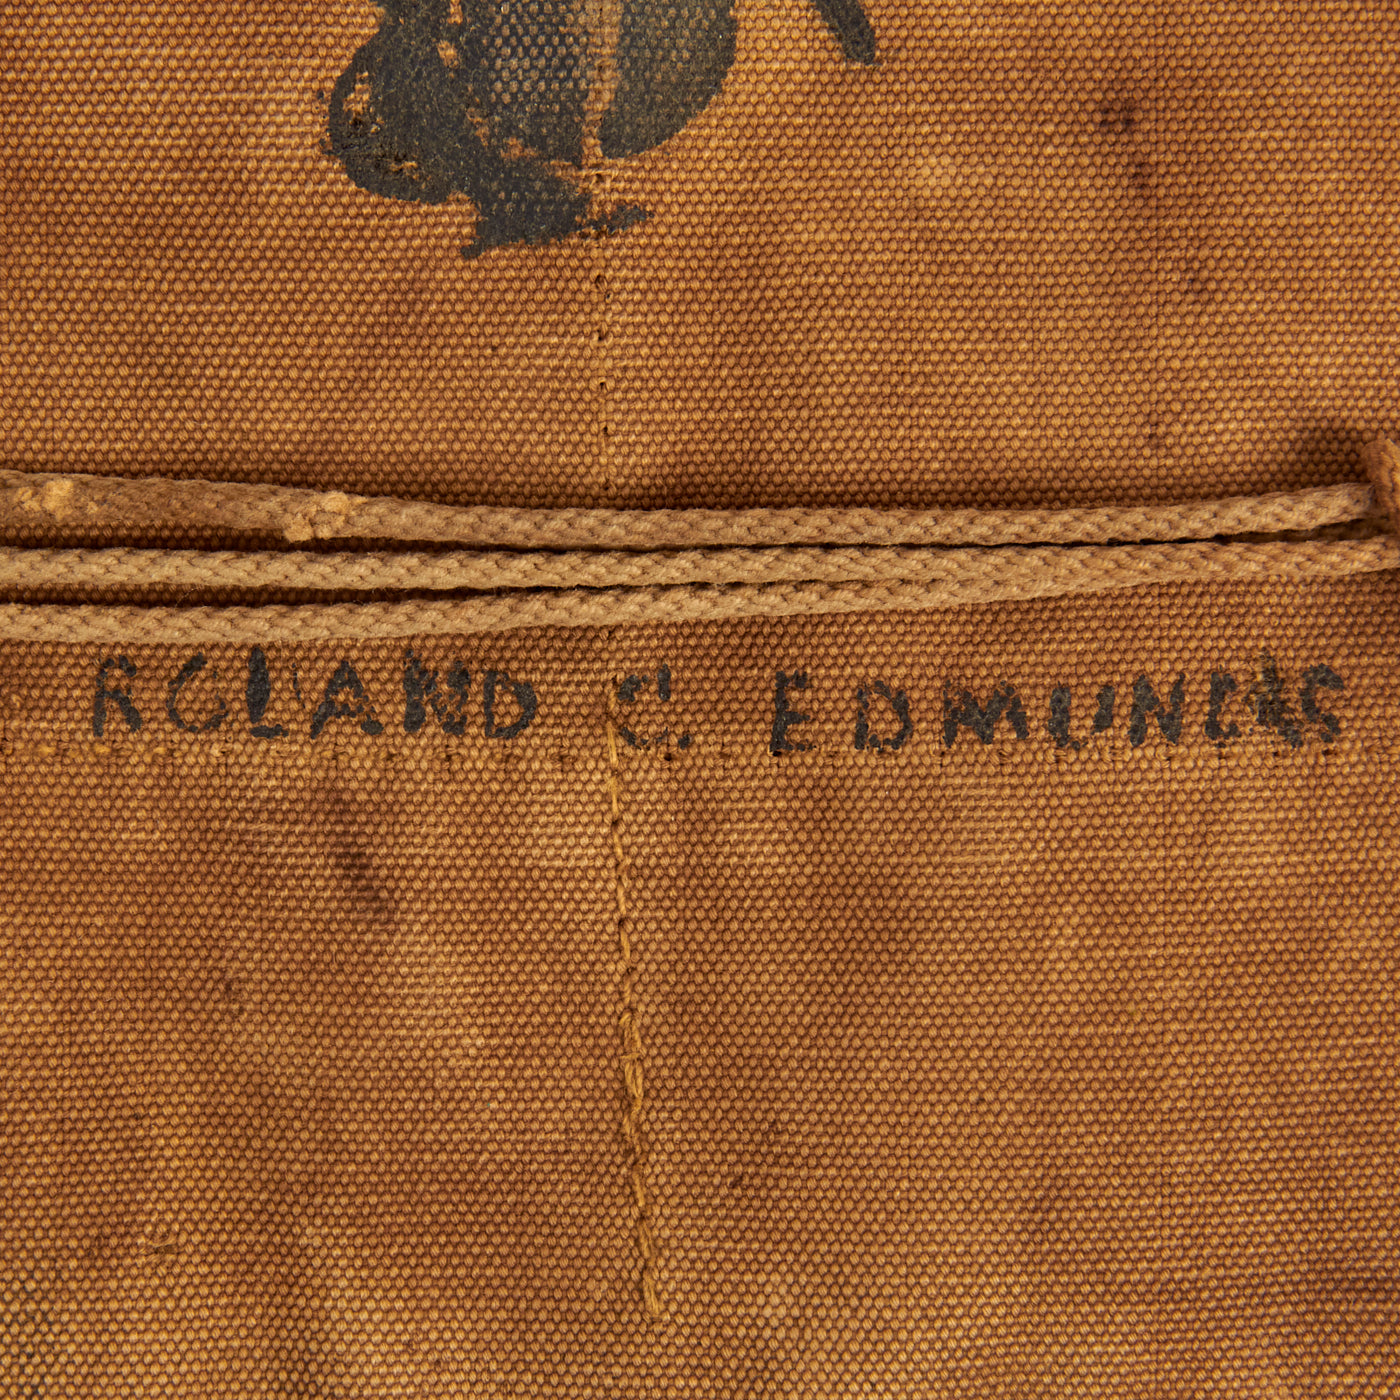 ROLAND C. EDMUNDS